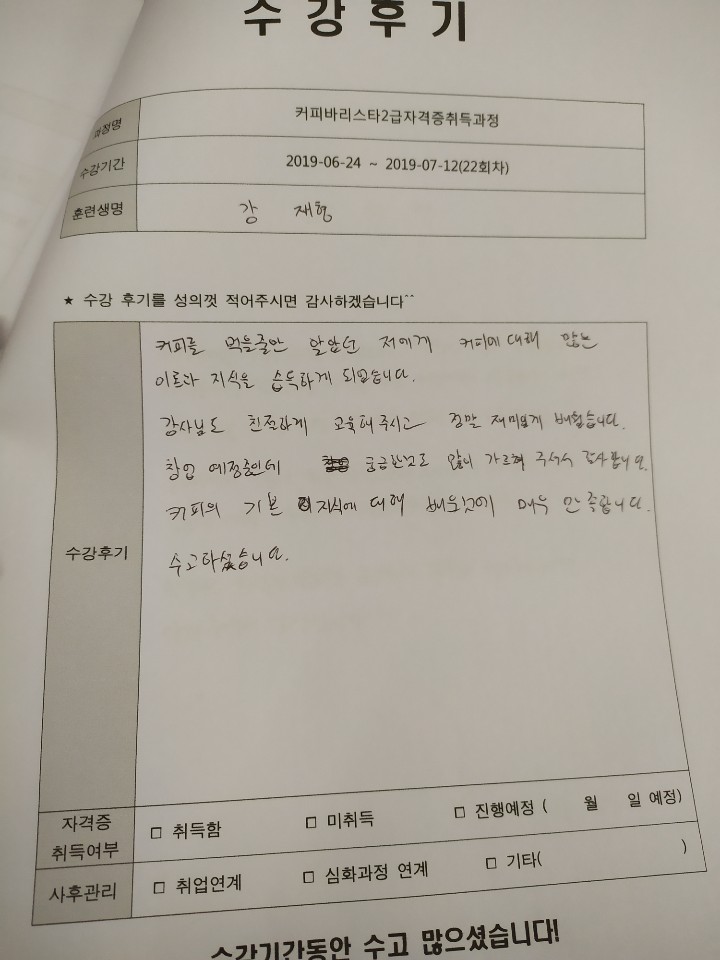 수강후기
과정명 커피바리스타2급자격증취득과정
수강기간 2019-06-24 ~ 2019-07-12(22회차)
훈련생명 강 재형
★ 수강 후기를 성의껏 적어주시면 감사하겠습니다^^
커피를 먹을줄만 알았던 저에게 커피에 대해 많은
이론과 지식을 습득하게 되었습니다.
강사님도 친절하게 교육해주시고 정말 재미있게 배웠습니다.
창업 예정중인데 궁금한것도 많이 가르쳐 주셔서 감사합니다.
커피의 기본 지식에 대해 배운것에 매우 만족합니다.
수고하셨습니다.
수강후기
자격증
취득여부
□ 취득함 □ 미취득 □ 진행예정 ( 월 일 예정)
사후관리 □ 취업연계 □ 심화과정 연계 □ 기타( )
수강기간동안 수고 많으셨습니다!